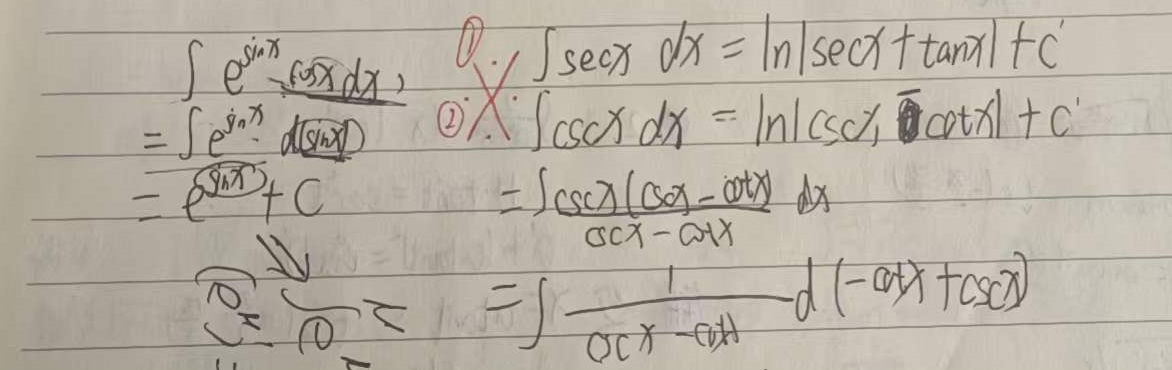 ∫ e^{sinx} · cosx dx,
= ∫ e^{sinx} · d(sinx)
= e^{sinx} + C
① ∫ secx dx = ln|secx + tanx| + C
② ∫ cscx dx = ln|cscx - cotx| + C
= ∫ \frac{cscx(cscx - cotx)}{cscx - cotx} dx
= ∫ \frac{1}{cscx - cotx} d(-cotx + cscx)